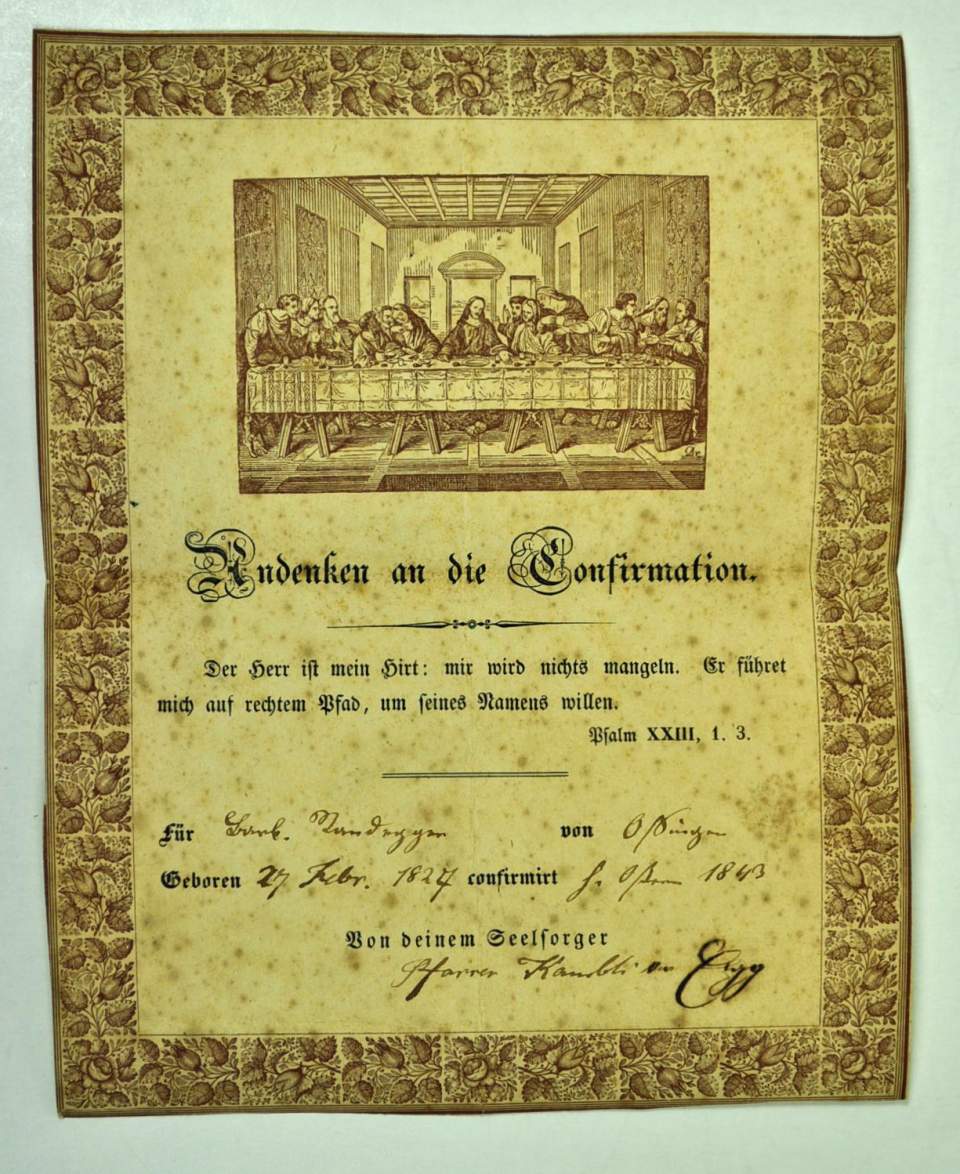 Andenken an die Confirmation.
Der Herr ist mein Hirt: mir wird nichts mangeln. Er führet
mich auf rechtem Pfad, um seines Namens willen.
Psalm XXIII, 1. 3.
Für Barb. von Ossingen
Geboren 27 Febr. 1827 confirmirt Ostern 1843
Von deinem Seelsorger
Pfarrer Kambli von Egg